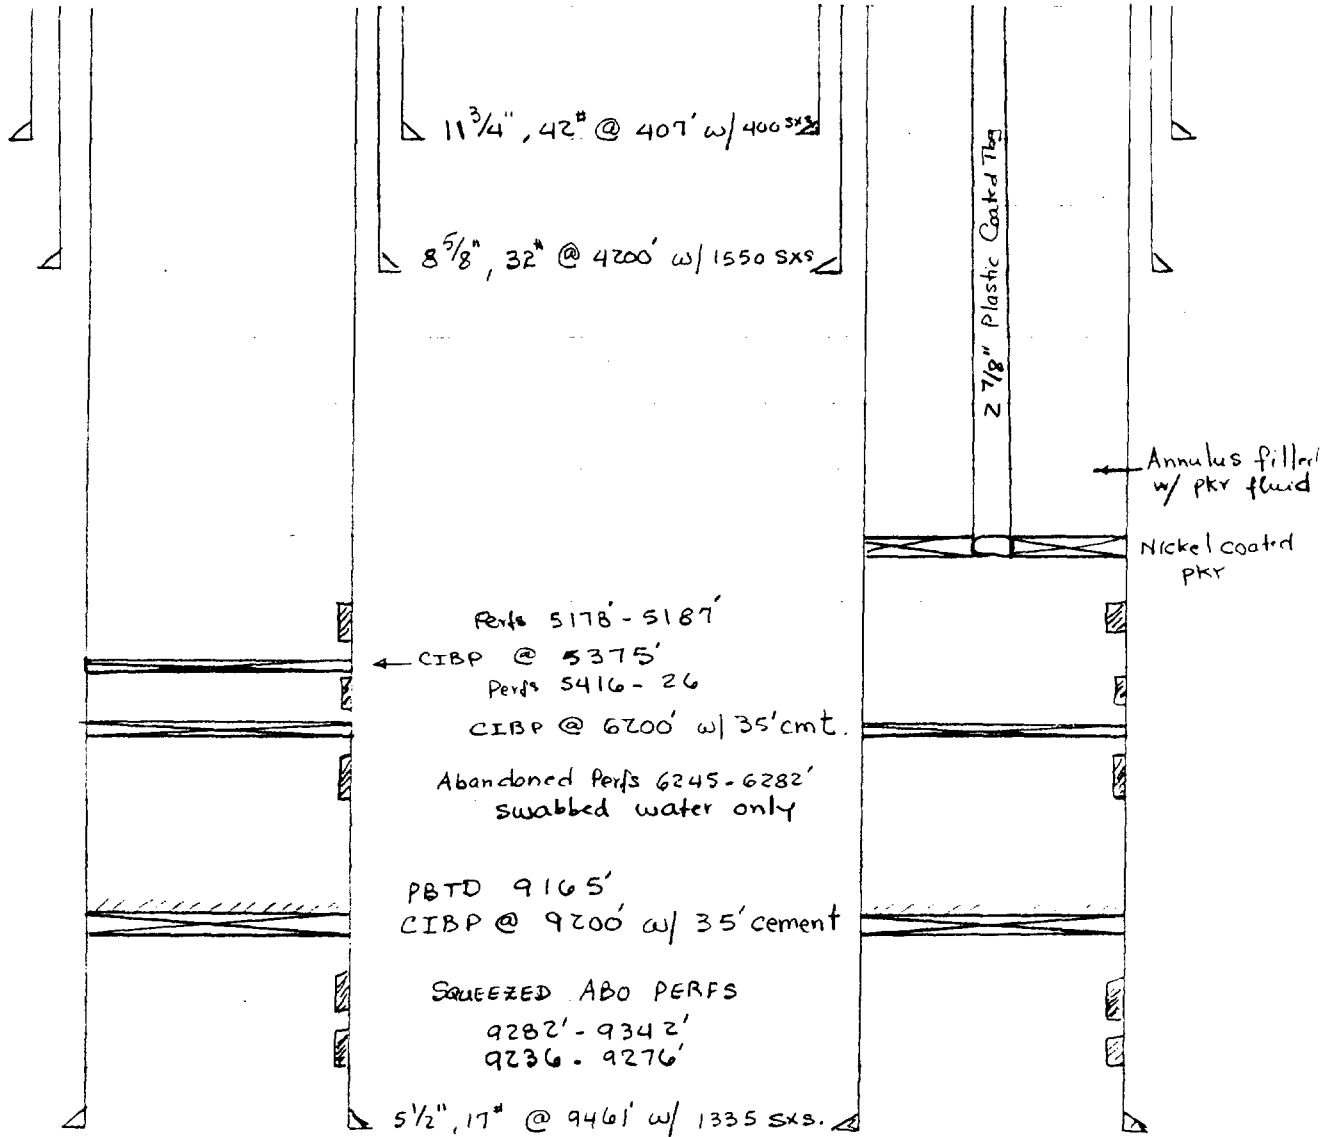 11 3/4", 42# @ 407' w/ 400 sxs
8 5/8", 32# @ 4200' w/ 1550 sxs
2 7/8" Plastic Coated Tbg
Annulus filled
w/ pkr fluid
Nickel coated
pkr
Perfs 5178'-5187'
CIBP @ 5375'
Perfs 5416-26
CIBP @ 6200' w/ 35' cmt.
Abandoned Perfs 6245-6282'
swabbed water only
PBTD 9165'
CIBP @ 9200' w/ 35' cement
SQUEEZED ABO PERFS
9282'-9342'
9236-9276'
5 1/2", 17# @ 9461' w/ 1335 sxs.